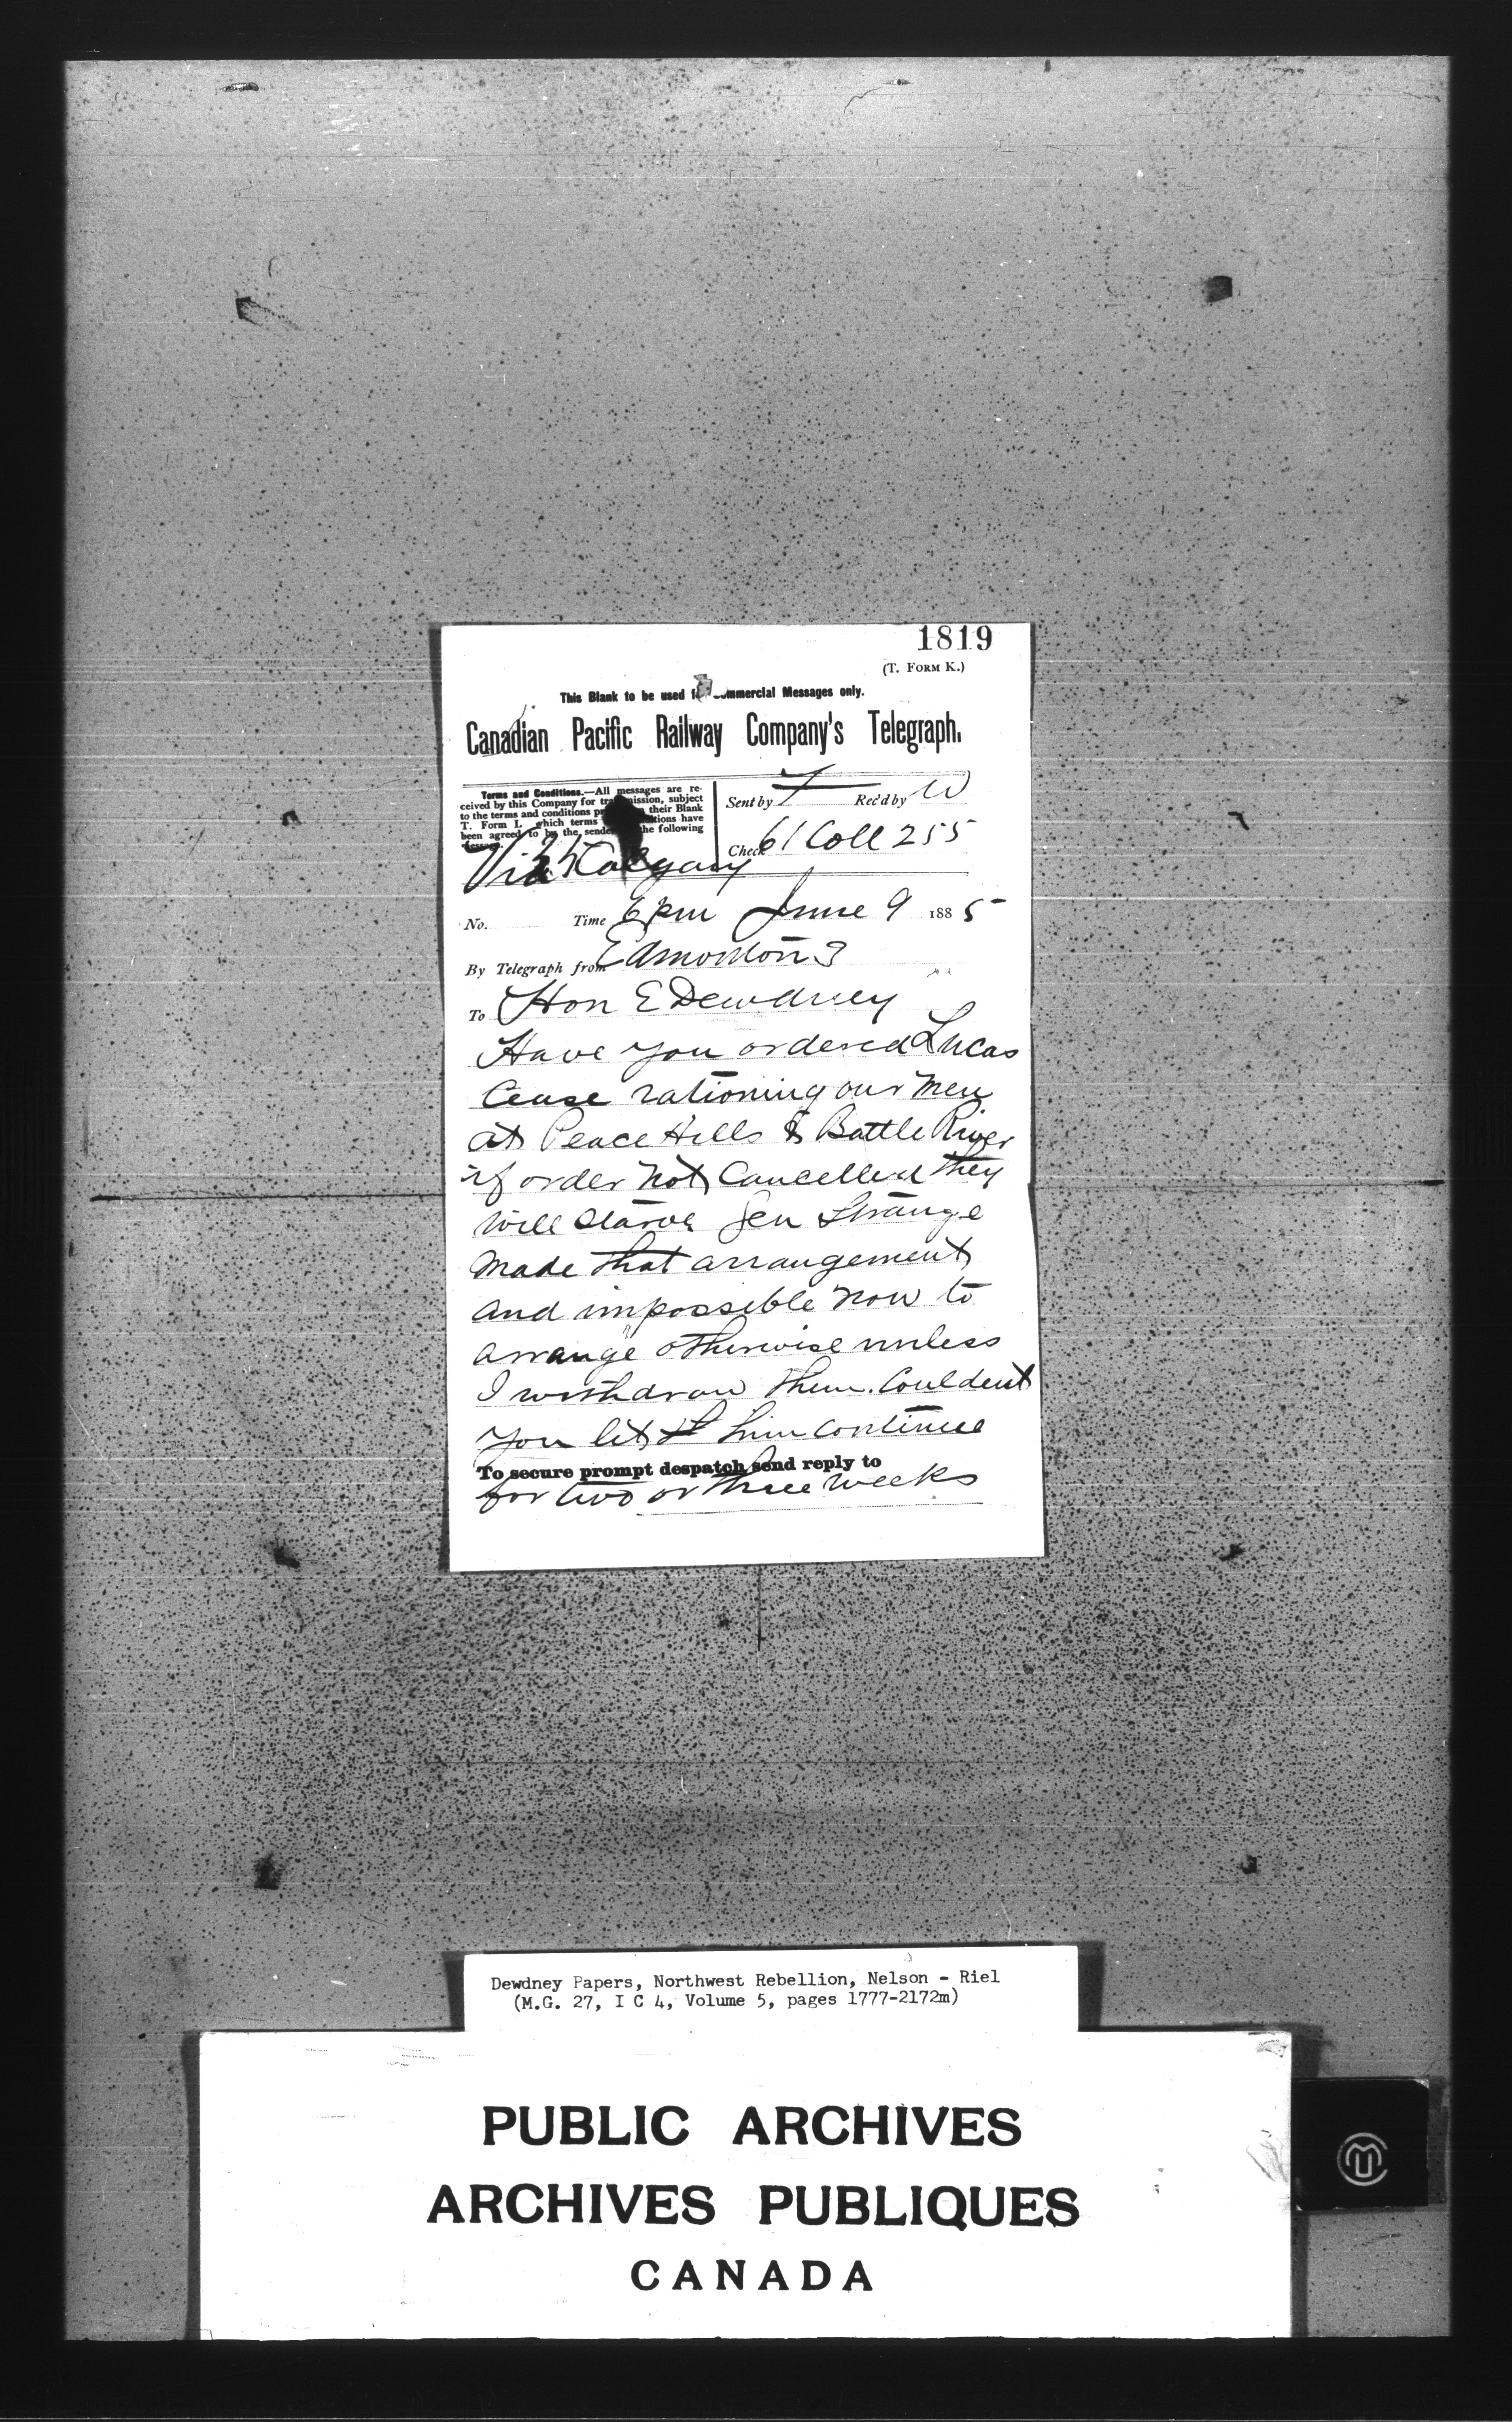 1819
(T. FORM K.)
This Blank to be used for Commercial Messages only.
Canadian Pacific Railway Company's Telegraph.
Terms and Conditions.—All messages are re-
ceived by this Company for transmission, subject
to the terms and conditions their Blank
T. Form I., which terms conditions have
been agreed to by the sender the following
message.
Sent by Rec'd by W
Check 61 Coll 255
Via Calgary
No. Time 6 pm June 9 1885
By Telegraph from Edmonton 3
To Hon E Dewdney
Have you ordered Lucas
Cease rationing our men
at Peace Hills & Battle River
if order not Cancelled they
will starve Gen Strange
made that arrangement
and impossible now to
arrange otherwise unless
I withdraw them. Couldent
you let him continue
To secure prompt despatch send reply to
for two or three weeks
Dewdney Papers, Northwest Rebellion, Nelson - Riel
(M.G. 27, I C 4, Volume 5, pages 1777-2172m)
PUBLIC ARCHIVES
ARCHIVES PUBLIQUES
CANADA